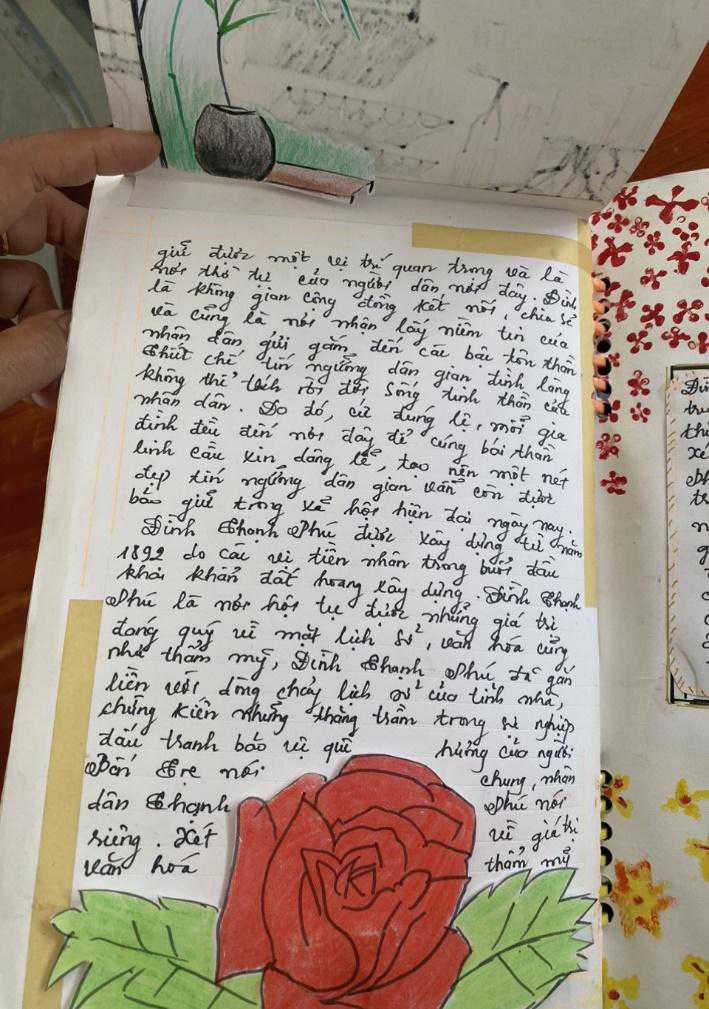 giữ được một vị trí quan trọng và là
nơi thờ tự của người dân nơi đây. Đình
là không gian cộng đồng kết nối, chia sẻ
và cũng là nơi nhận lấy niềm tin của
nhân dân gửi gắm đến các bậc tôn thần.
Thiết chế tín ngưỡng dân gian đình làng
không thể tách rời đời sống tinh thần của
nhân dân. Do đó, cứ đúng lệ, mỗi gia
đình đều đến nơi đây để cúng bái thần
linh cầu xin dâng lễ, tạo nên một nét
đẹp tín ngưỡng dân gian vẫn còn được
bảo giữ trong xã hội hiện đại ngày nay.
Đình Thạnh Phú được xây dựng từ năm
1892 do các vị tiền nhân trong buổi đầu
khai khẩn đất hoang xây dựng. Đình Thạnh
Phú là nơi hội tụ được những giá trị
đáng quý về mặt lịch sử, văn hóa cũng
như thẩm mỹ, Đình Thạnh Phú đã gắn
liền với dòng chảy lịch sử của tỉnh nhà,
chứng kiến những thăng trầm trong sự nghiệp
đấu tranh bảo vệ quê hương của người
Bến Tre nói chung, nhân
dân Thạnh Phú nói
riêng. Xét về giá trị
văn hoá thẩm mỹ